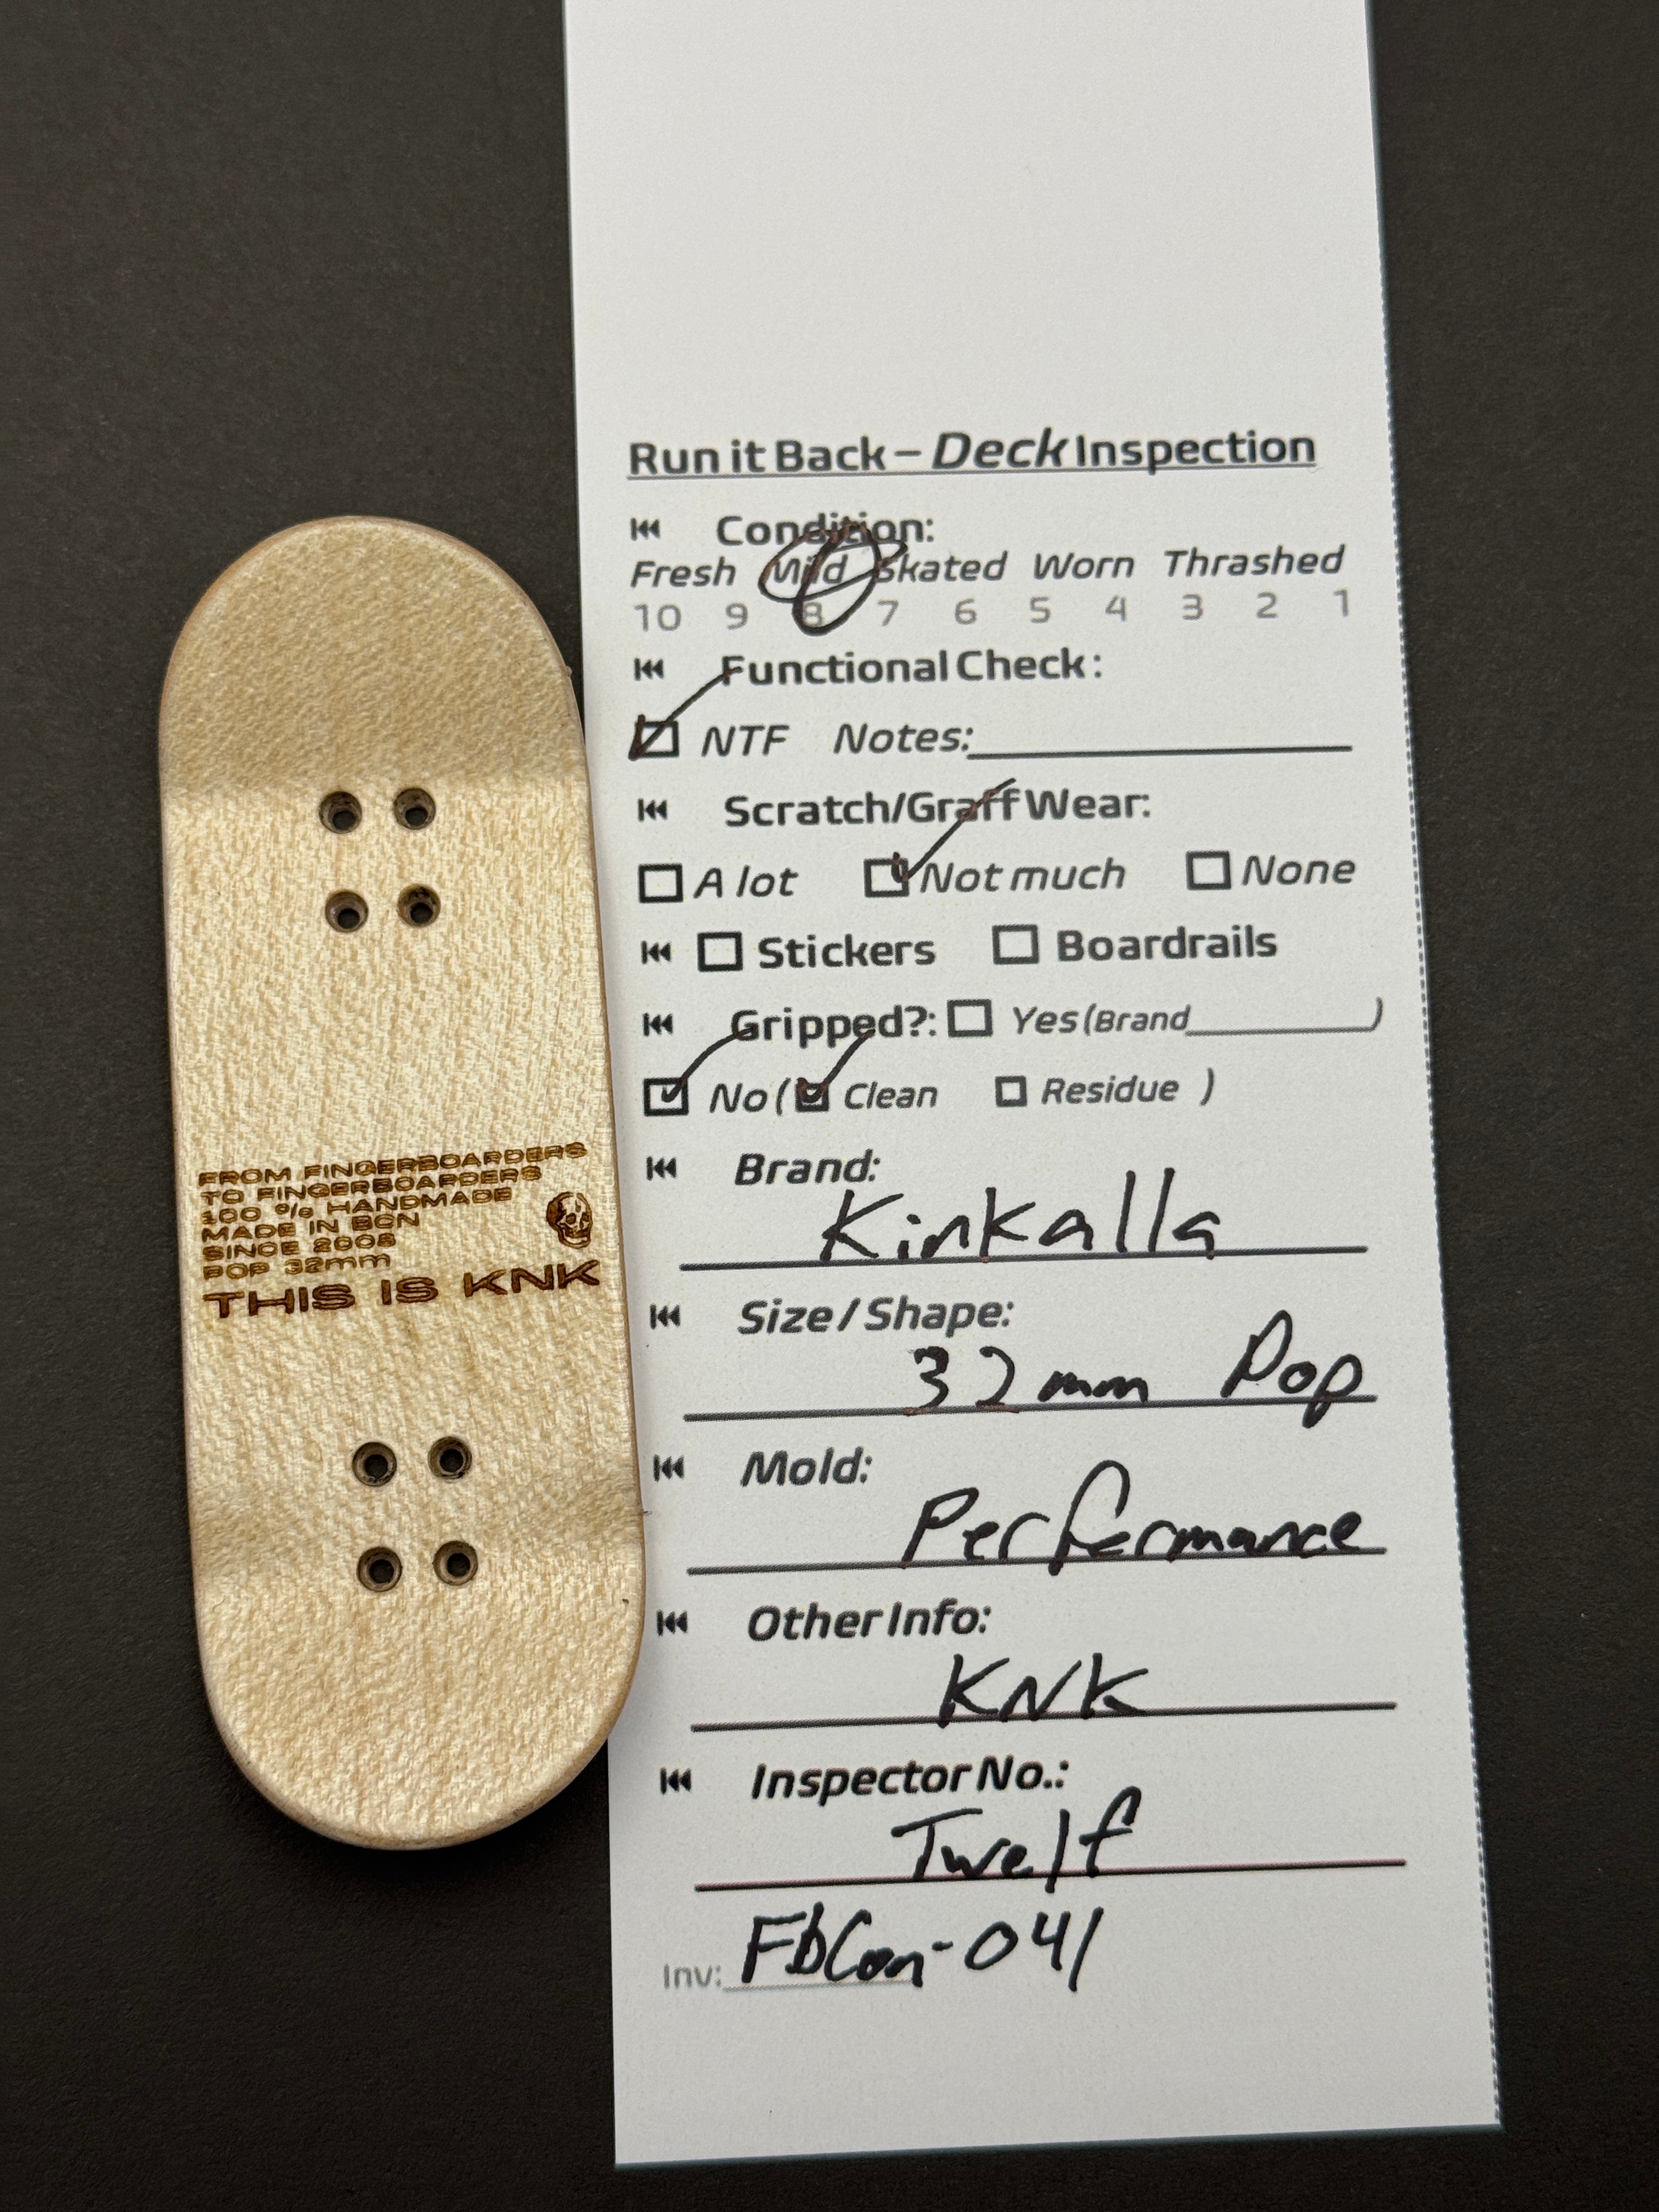 Run it Back – Deck Inspection
Condition:
Fresh Mild Skated Worn Thrashed
10 9 8 7 6 5 4 3 2 1
Functional Check:
NTF Notes:
Scratch/Graff Wear:
A lot Not much None
Stickers Boardrails
Gripped?: Yes (Brand )
No ( Clean Residue )
Brand:
Kinkalla
Size / Shape:
32mm Pop
Mold:
Performance
Other Info:
KNK
Inspector No.:
Twelf
Inv: FbCon-041
FROM FINGERBOARDERS
TO FINGERBOARDERS
100 % HANDMADE
MADE IN BCN
SINCE 2008
POP 32mm
THIS IS KNK